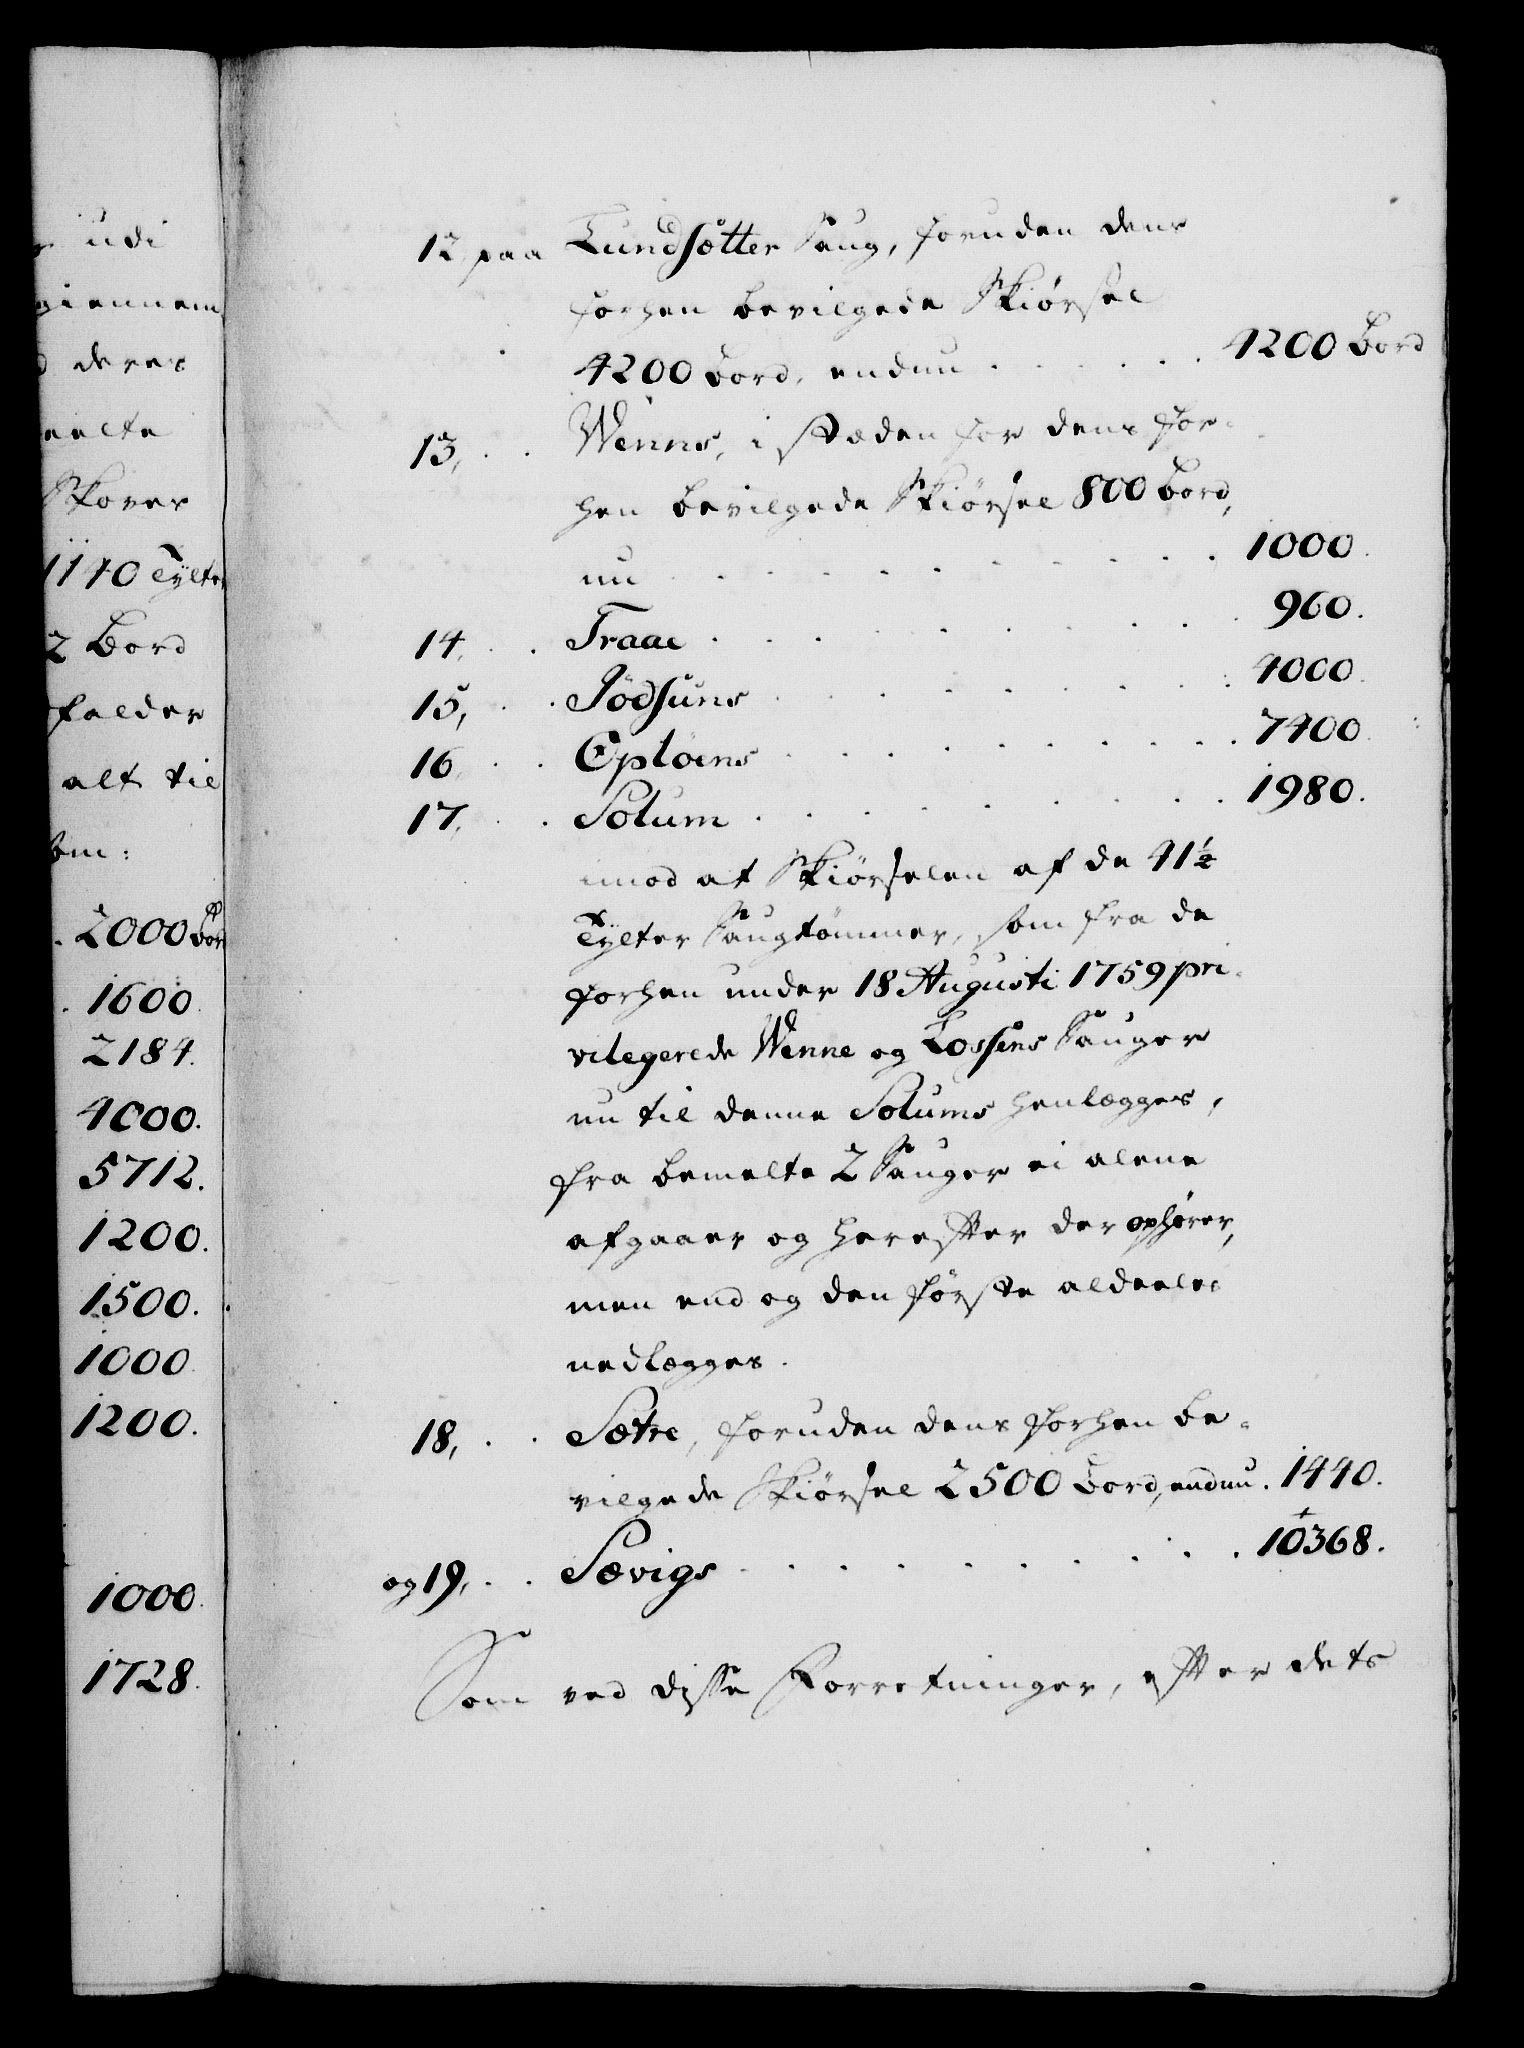 udi
giennem
deres
eelte
Skover
1140 Tylter
2 Bord
falder
alt til
om:
2000 Bor
1600
2184.
4000.
5712.
1200.
1500.
1000
1200.
1000.
1728.
12, paa Lundsætter Saug, foruden dens
forhen bevilgede Skiørsel
4200 Bord, endnu . . . . . 4200 Bord
13, . . Wenns, i stæden for dens for-
hen bevilgede Skiørsel 800 Bord,
nu . . . . . . . . . 1000.
14, . . Traae . . . . . . . . . 960.
15, . . Jødsuns . . . . . . . . 4000.
16 . . Opløens . . . . . . . . . 7400
17, . . Solum . . . . . . . . 1980.
imod at Skiørselen af de 41 1/2
Tylter Saugtømmer, som fra de
forhen under 18 Augusti 1759 pri-
vilegerede Wenne og Lossens Sauger
nu til denne Solums henlægges,
fra bemelte 2 Sauger ei alene
afgaaer og herefter der ophører,
men end og den første aldeeles
nedlægges.
18, . . Sætre, foruden dens forhen be-
vilgede Skiørsel 2500 Bord, endnu . 1440.
og 19, . . Sævigs . . . . . . . . . 10368.
Som ved disse Forretninger, efter dets